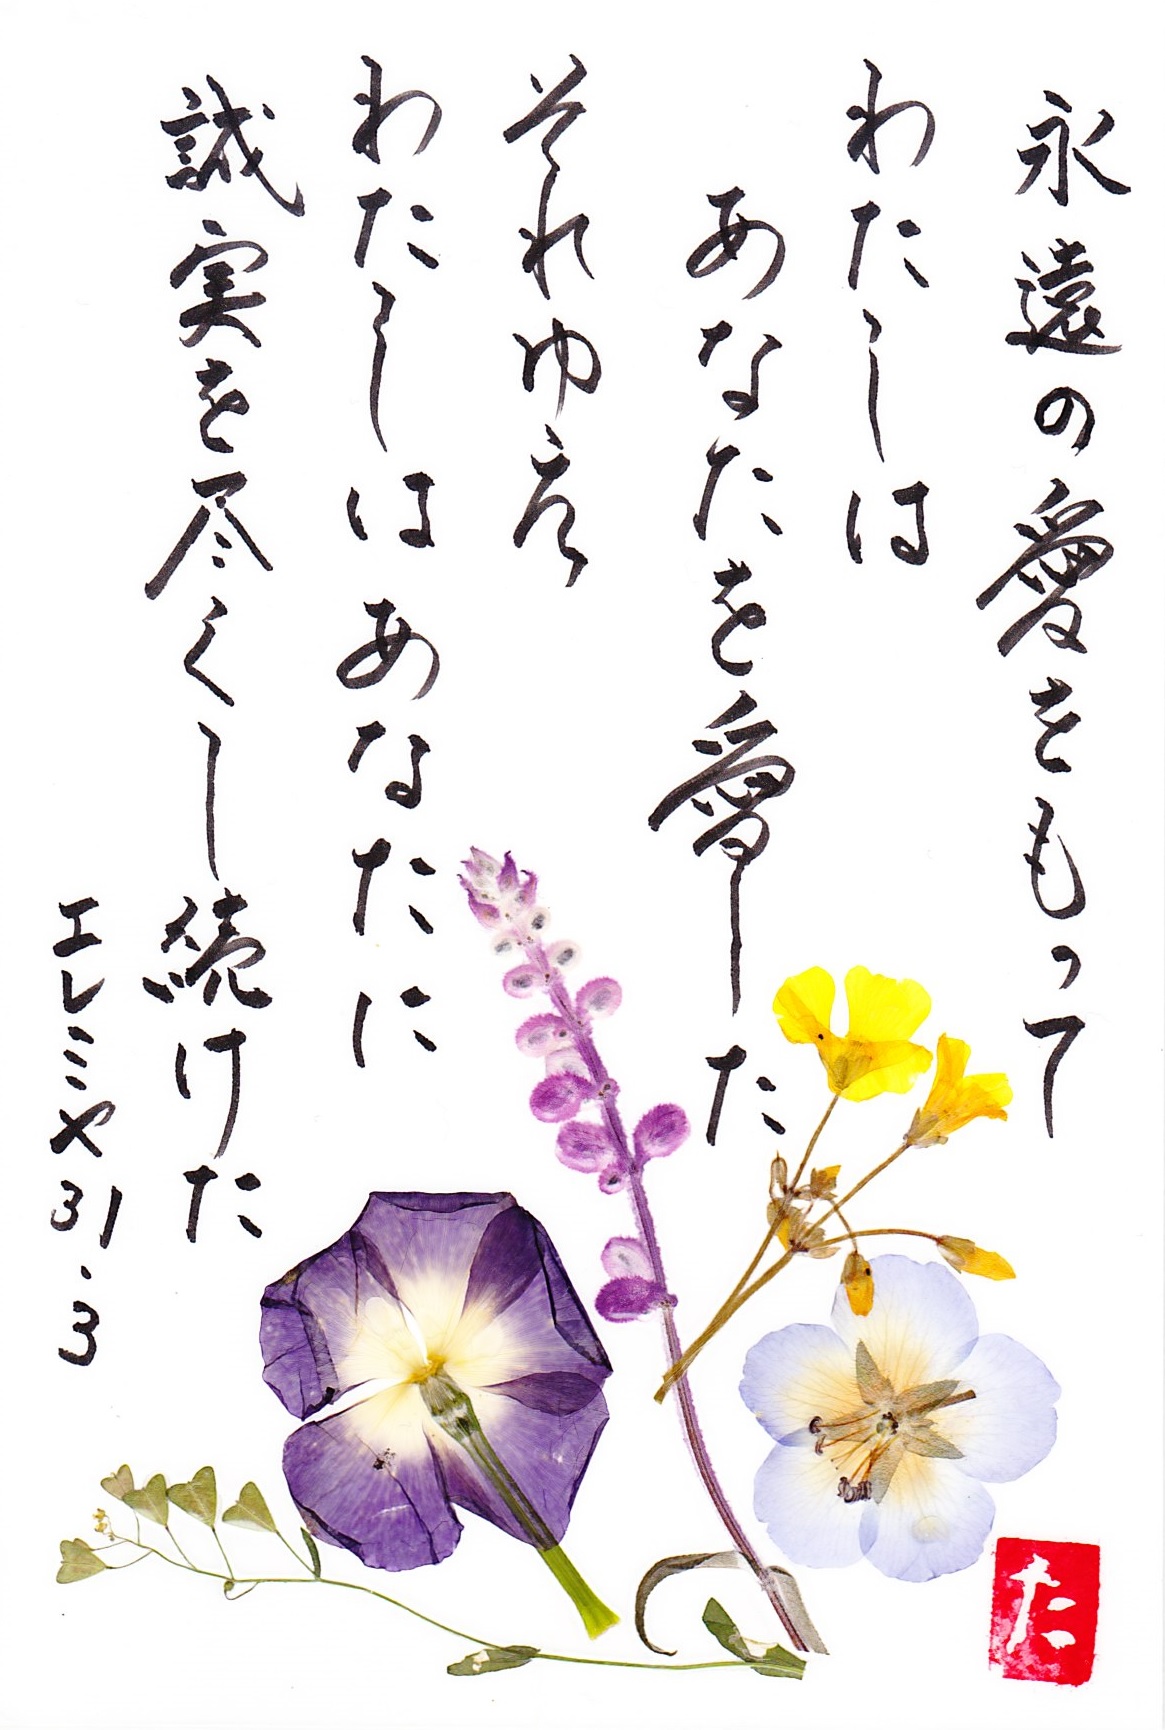 永遠の愛をもって
わたしは
あなたを愛した
それゆえ
わたしはあなたに
誠実を尽くし続けた
エレミヤ31.3
た